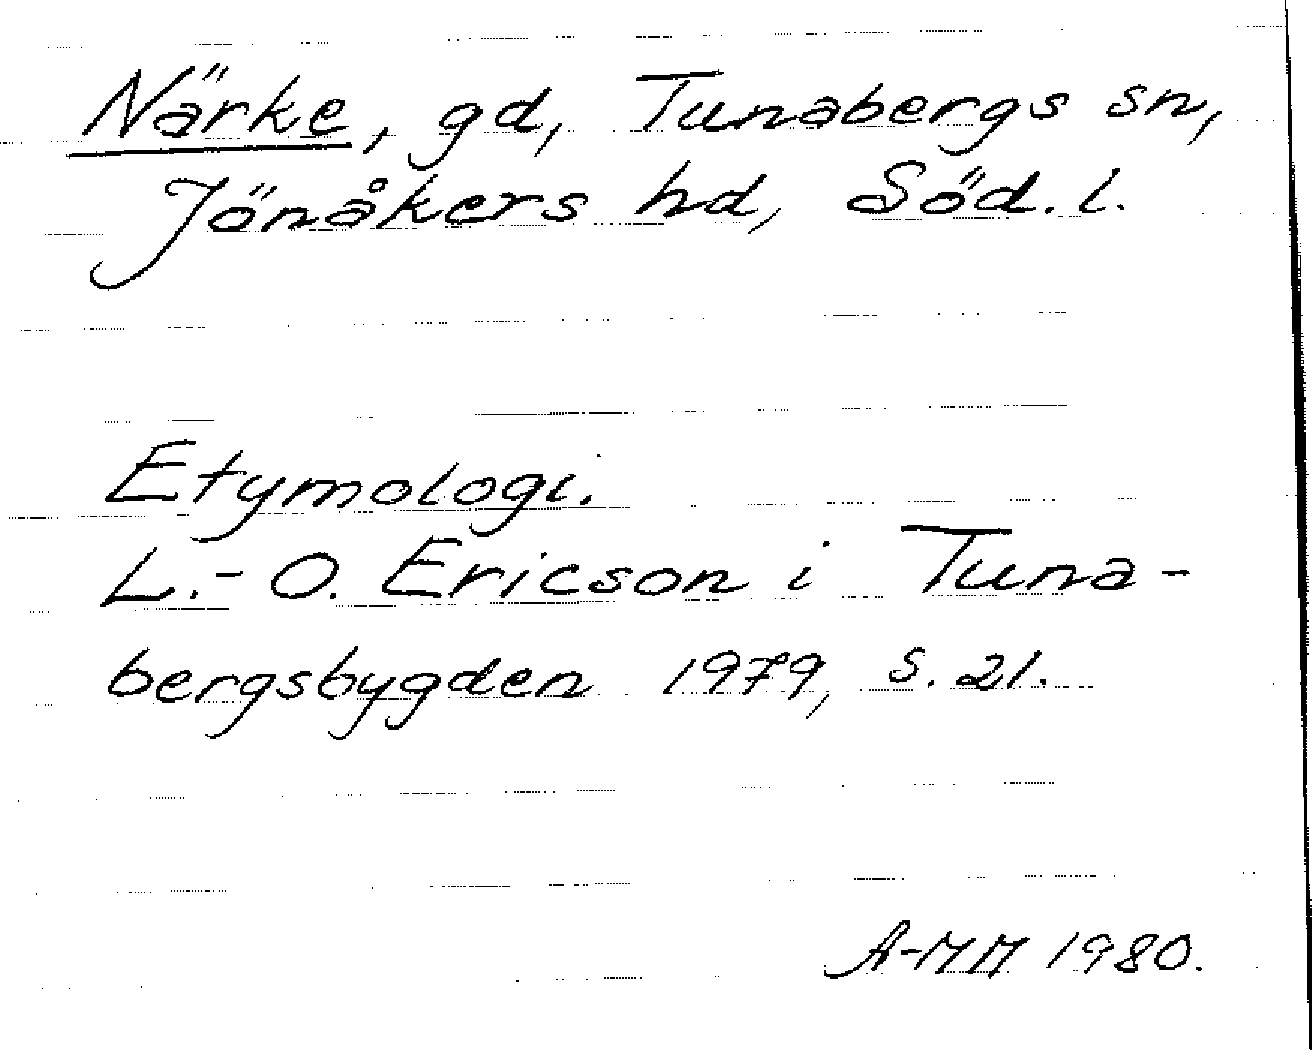 Närke, gd, Tunabergs sn,
Jönåkers hd, Söd. l.
Etymologi.
L.-O. Ericson i Tuna-
bergsbygden 1979, s. 21.
A-MM 1980.